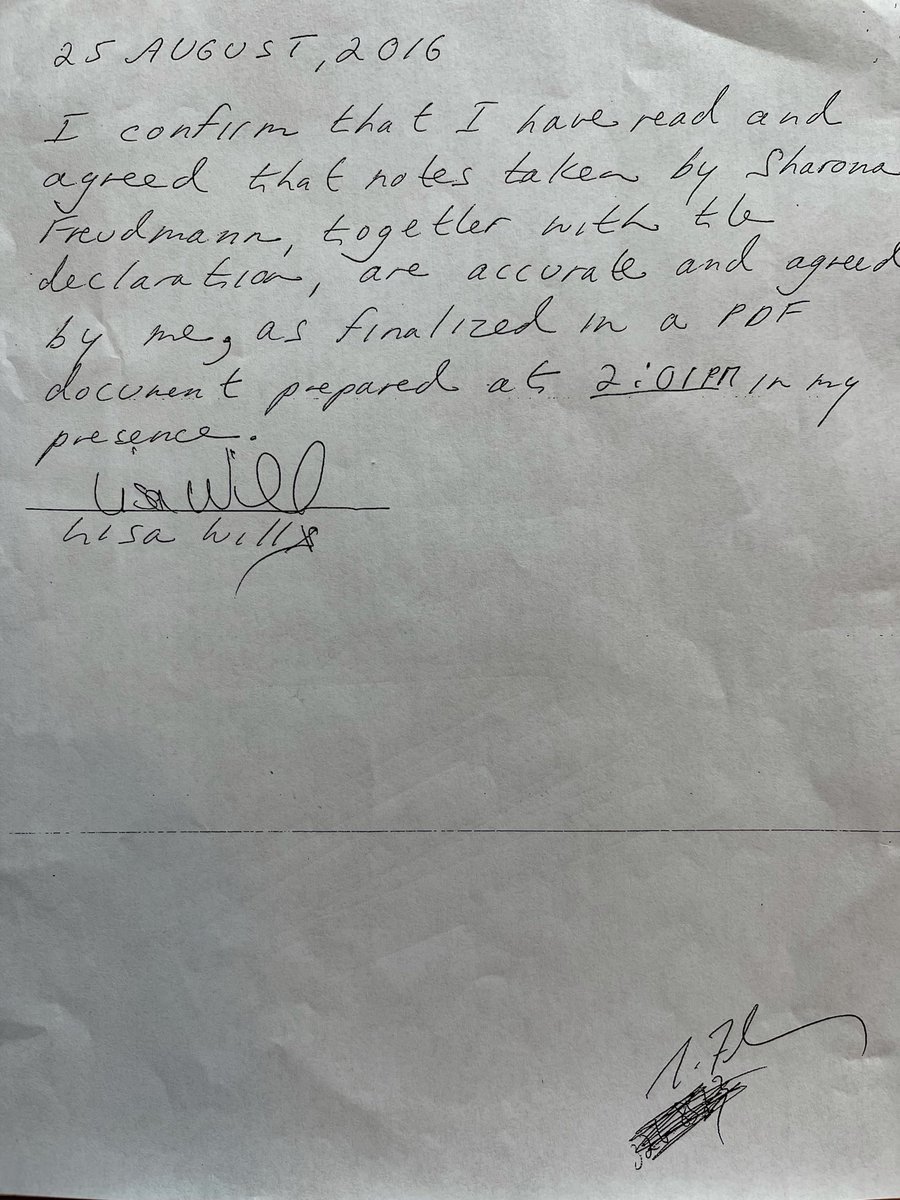 25 AUGUST, 2016
I confirm that I have read and
agreed that notes taken by Sharona
Freudmann, together with the
declaration, are accurate and agreed
by me, as finalized in a PDF
document prepared at 2:01PM in my
presence.
Lisa Will
Lisa Will